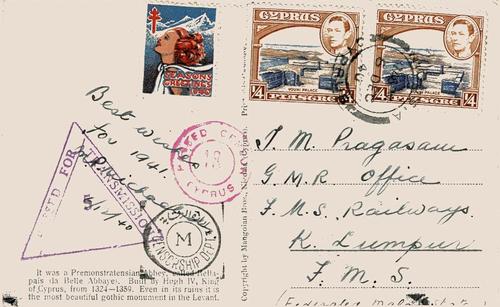 SEASONS
GREETINGS
CYPRUS
VOUNI PALACE
1/4 PIASTRE 1/4
CYPRUS
VOUNI PALACE
1/4 PIASTRE 1/4
Best wishes
for 1941.
5/12/40
PASSED FOR
TRANSMISSION
PASSED CENSOR
CYPRUS
M
CENSORSHIP DEPT.
It was a Premonstratensian Abbey, called Bella-
pais (la Belle Abbaye). Built by Hugh IV, King
of Cyprus, from 1324—1359. Even in its ruins it is
the most beautiful gothic monument in the Levant.
Copyright by Mangoian Bros., Nicosia (Cyprus).
T. M. Pragasam
G. M. R Office
F. M. S. Railways.
K. Lumpur
F. M. S.